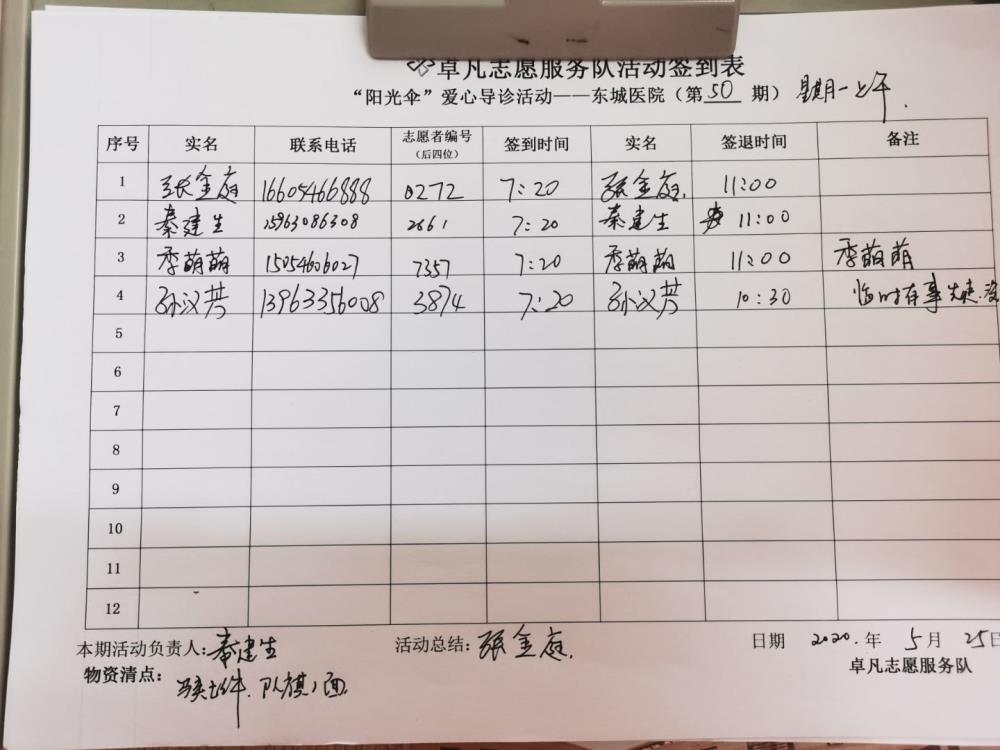 卓凡志愿服务队活动签到表
“阳光伞”爱心导诊活动——东城医院（第 50 期） 星期一上午.
序号 实名 联系电话 志愿者编号（后四位） 签到时间 实名 签退时间 备注
1 张金庭 16605466888 0272 7:20 张金庭. 11:00
2 秦建生 15963086308 2661 7:20 秦建生 11:00
3 季萌萌 15054606027 7357 7:20 季萌萌 11:00 季萌萌
4 孙汉芳 13963356008 3874 7:20 孙汉芳 10:30 临时有事先走
5
6
7
8
9
10
11
12
本期活动负责人:秦建生 活动总结:张金庭. 日期 2020.年 5月 25日
物资清点: 队旗1面 卓凡志愿服务队